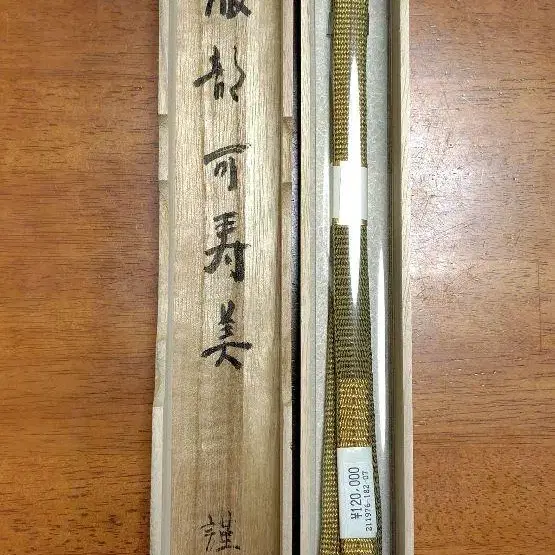 服部可寿美
謹
¥120,000
211976-182-07